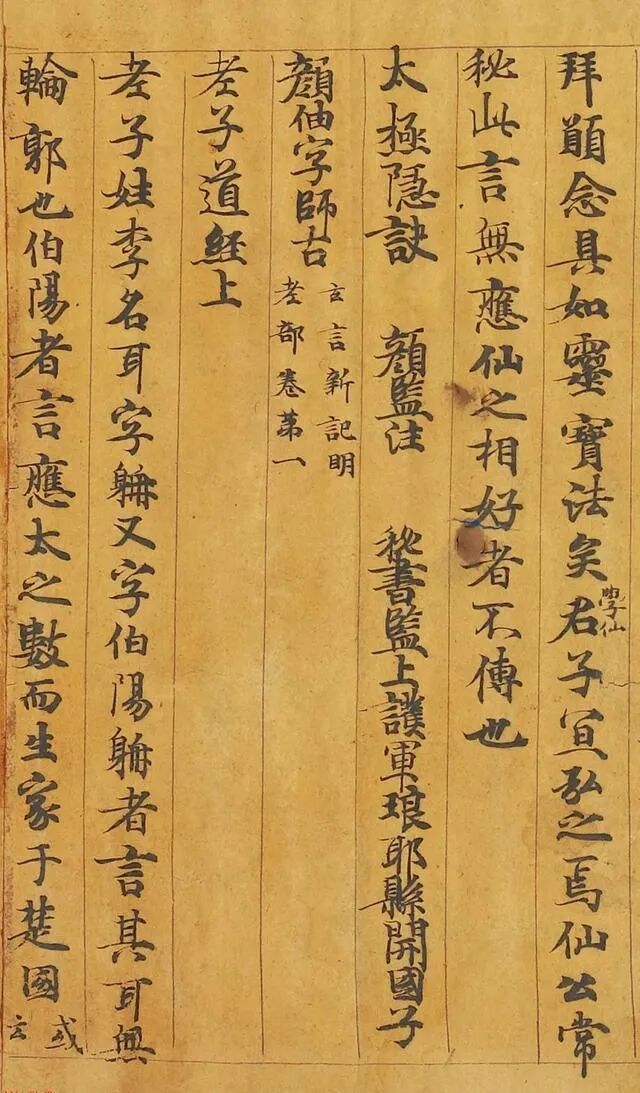 拜願念具如靈寶法矣君子學仙宜弘之焉仙公常
秘此言無應仙之相好者不傳也
太極隱訣 顏監注 秘書監上護軍琅耶縣開國子
顏伷字師古 玄言新記明
老部卷第一
老子道經上
老子姓李名耳字聃又字伯陽聃者言其耳無
輪郭也伯陽者言應太之數而生家于楚國或
云